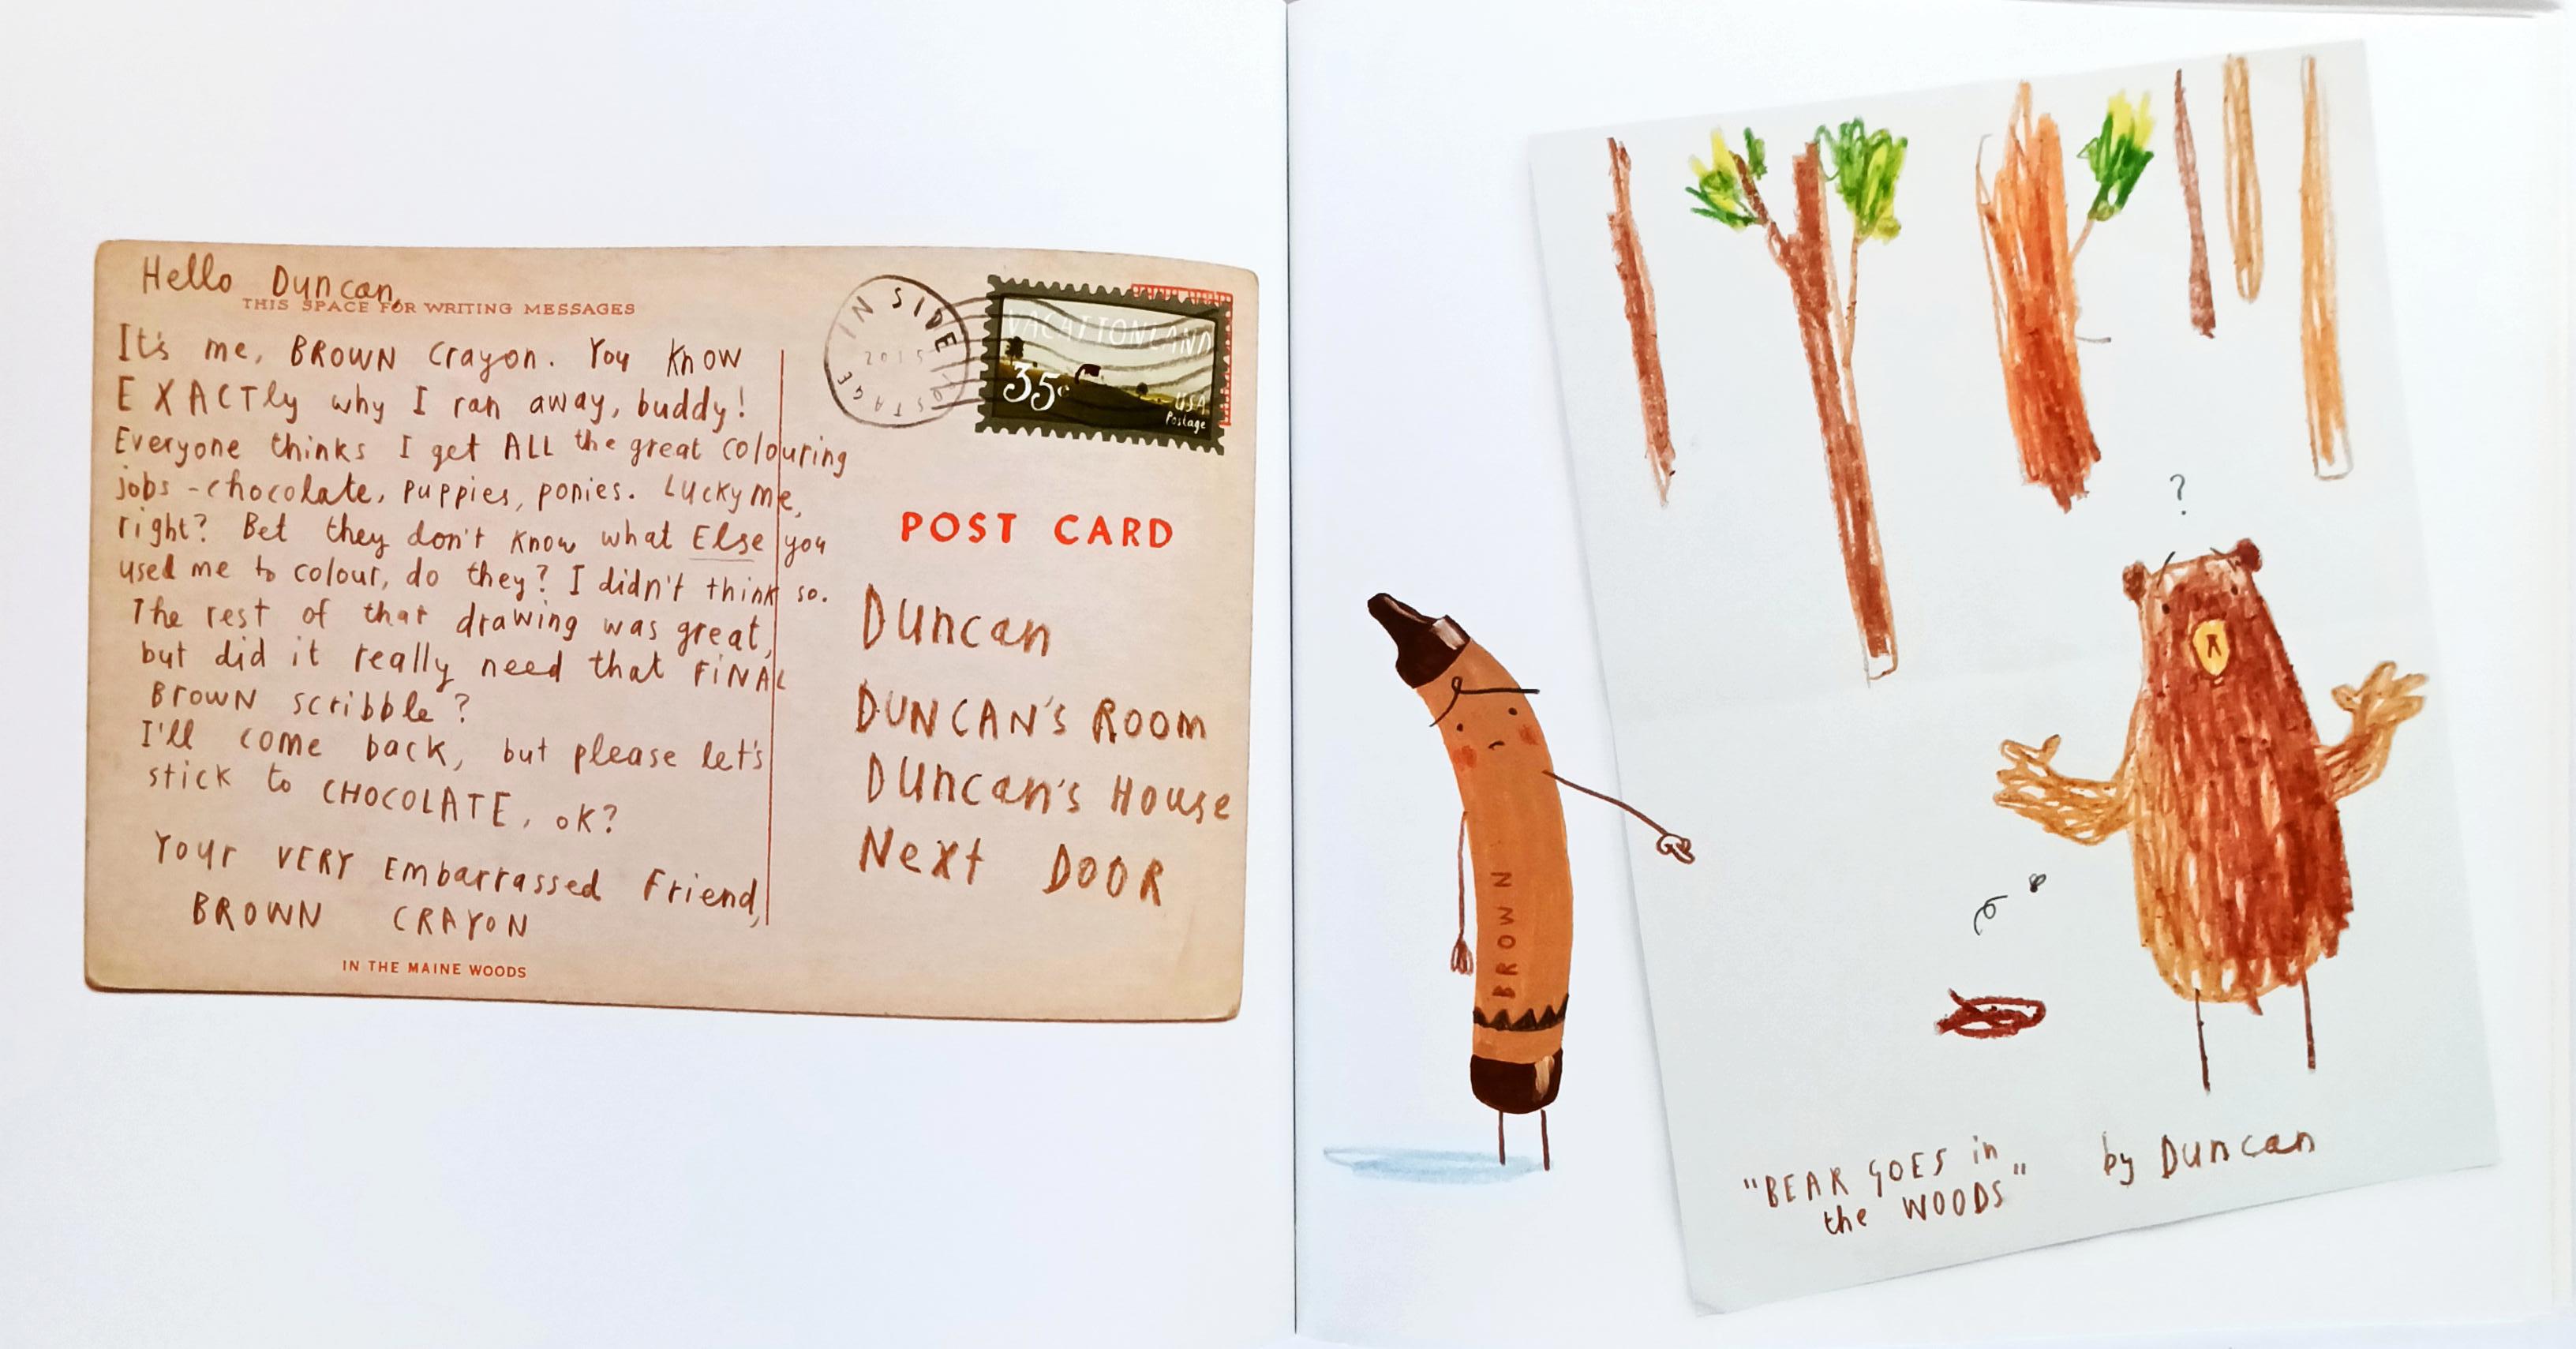 Hello Duncan,
THIS SPACE FOR WRITING MESSAGES
It's me, BROWN crayon. You know
EXACTLY why I ran away, buddy!
Everyone thinks I get ALL the great colouring
jobs - chocolate, puppies, ponies. Lucky me,
right? Bet they don't know what Else you
used me to colour, do they? I didn't think so.
The rest of that drawing was great,
but did it really need that FINAL
BROWN scribble?
I'll come back, but please let's
stick to CHOCOLATE, ok?
Your VERY Embarrassed Friend,
BROWN CRAYON
IN THE MAINE WOODS
INSIDE
2015
POSTAGE
VACATIONLAND
35c
USA
Postage
POST CARD
Duncan
DUNCAN'S ROOM
Duncan's House
Next DOOR
BROWN
?
"BEAR GOES in
the WOODS"
by Duncan